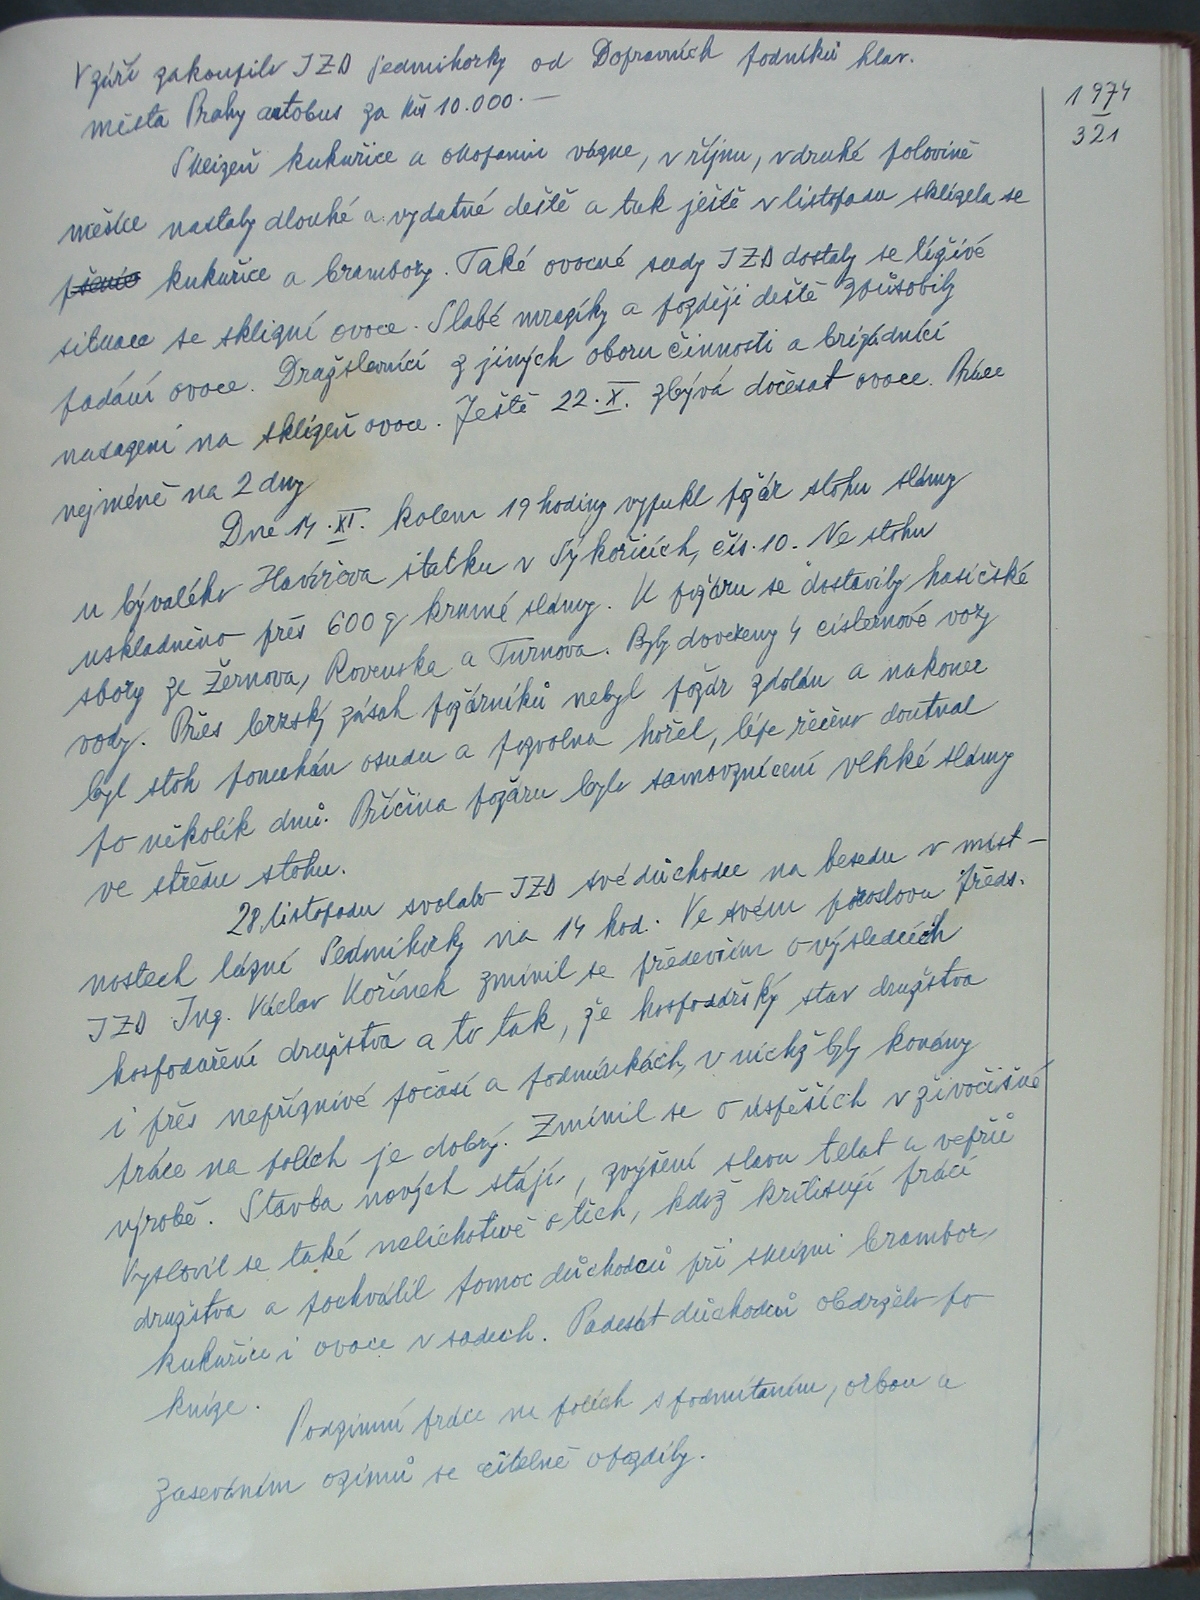 V září zakoupilo JZD Sedmihorky od Dopravních podniků hlav.
města Prahy autobus za Kčs 10.000.—
1974
321
Sklizeň kukuřice a okopanin vázne, v říjnu, v druhé polovině
měsíce nastaly dlouhé a vydatné deště a tak ještě v listopadu sklízela se
kukuřice a brambory. Také ovocné sady JZD dostaly se do tíživé
situace se sklizní ovoce. Slabé mrazíky a později deště způsobily
padání ovoce. Družstevníci z jiných oboru činnosti a brigádníci
nasazeni na sklizeň ovoce. Ještě 22.X. zbývá dočesat ovoce. Práce
nejméně na 2 dny
Dne 14.XI. kolem 19 hodiny vypukl požár stohu slámy
u bývalého Havířčova statku v Sýkořicích, čís. 10. Ve stohu
uskladněno přes 600 q krmné slámy. K požáru se dostavily hasičské
sbory ze Žernova, Rovenska a Turnova. Byly dovezeny 4 cisternové vozy
vody. Přes brzský zásah požárníků nebyl požár zdolán a nakonec
byl stoh ponechán osudu a pozvolna hořel, lépe řečeno doutnal
po několik dnů. Příčina požáru bylo samovznícení vlhké slámy
ve středu stohu.
28. listopadu svolalo JZD své důchodce na besedu v míst-
nostech lázní Sedmihorky na 14 hod. Ve svém proslovu předs.
JZD Ing. Václav Kořínek zmínil se především o výsledcích
hospodaření družstva a to tak, že hospodářský stav družstva
i přes nepříznivé počasí a podmínkách, v nichž byly konány
práce na polích je dobrý. Zmínil se o úspěších v živočišné
výrobě. Stavba nových stájí, zvýšení stavu telat a vepřů
Vyslovil se také nelichotivě o těch, kdož kritisují práci
družstva a pochválil pomoc důchodců při sklizni brambor,
kukuřice i ovoce v sadech. Padesát důchodců obdrželo po
knize.
Podzimní práce na polích s podmítaním, orbou a
zaseváním ozimů se citelně opozdily.